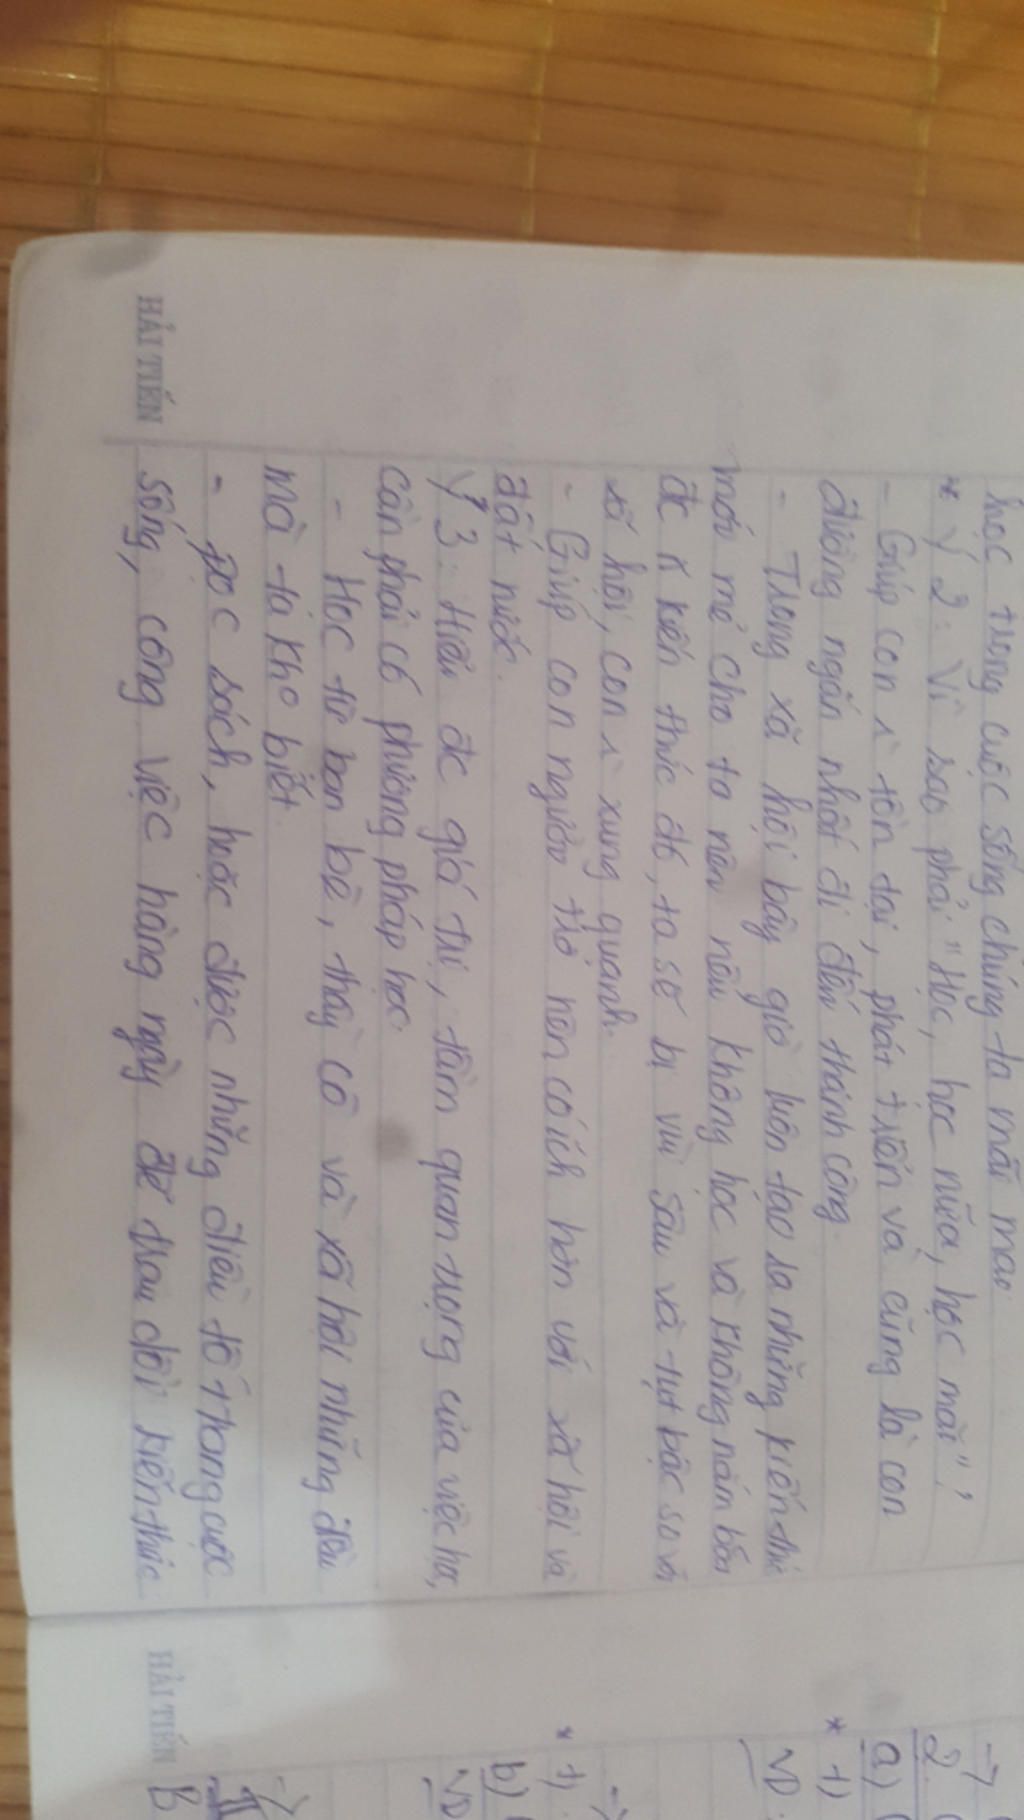 học trong cuộc sống chúng ta mãi mãi
* Ý 2: Vì sao phải "Học, học nữa, học mãi"?
- Giúp con tồn tại, phát triển và cũng là con
đường ngắn nhất đi đến thành công.
- Trong xã hội bây giờ luôn tạo ra những kiến thức
mới mẻ cho ta nên nếu không học và không nắm bắt
đc kiến thức đó, ta sẽ bị vùi sâu và tụt bậc so với
xã hội, con xung quanh.
- Giúp con người trở nên có ích hơn với xã hội và
đất nước.
Ý 3: Hiểu đc giá trị, tầm quan trọng của việc học,
cần phải có phương pháp học.
- Học từ bạn bè, thầy cô và xã hội những điều
mà ta kho biết.
- Đọc sách, hoặc được những điều tốt trong cuộc
sống, công việc hằng ngày để trau dồi kiến thức
HẢI TIẾN
→
2.
a)
* 1)
VD:
* 1)
b)
VD
HẢI TIẾN
B